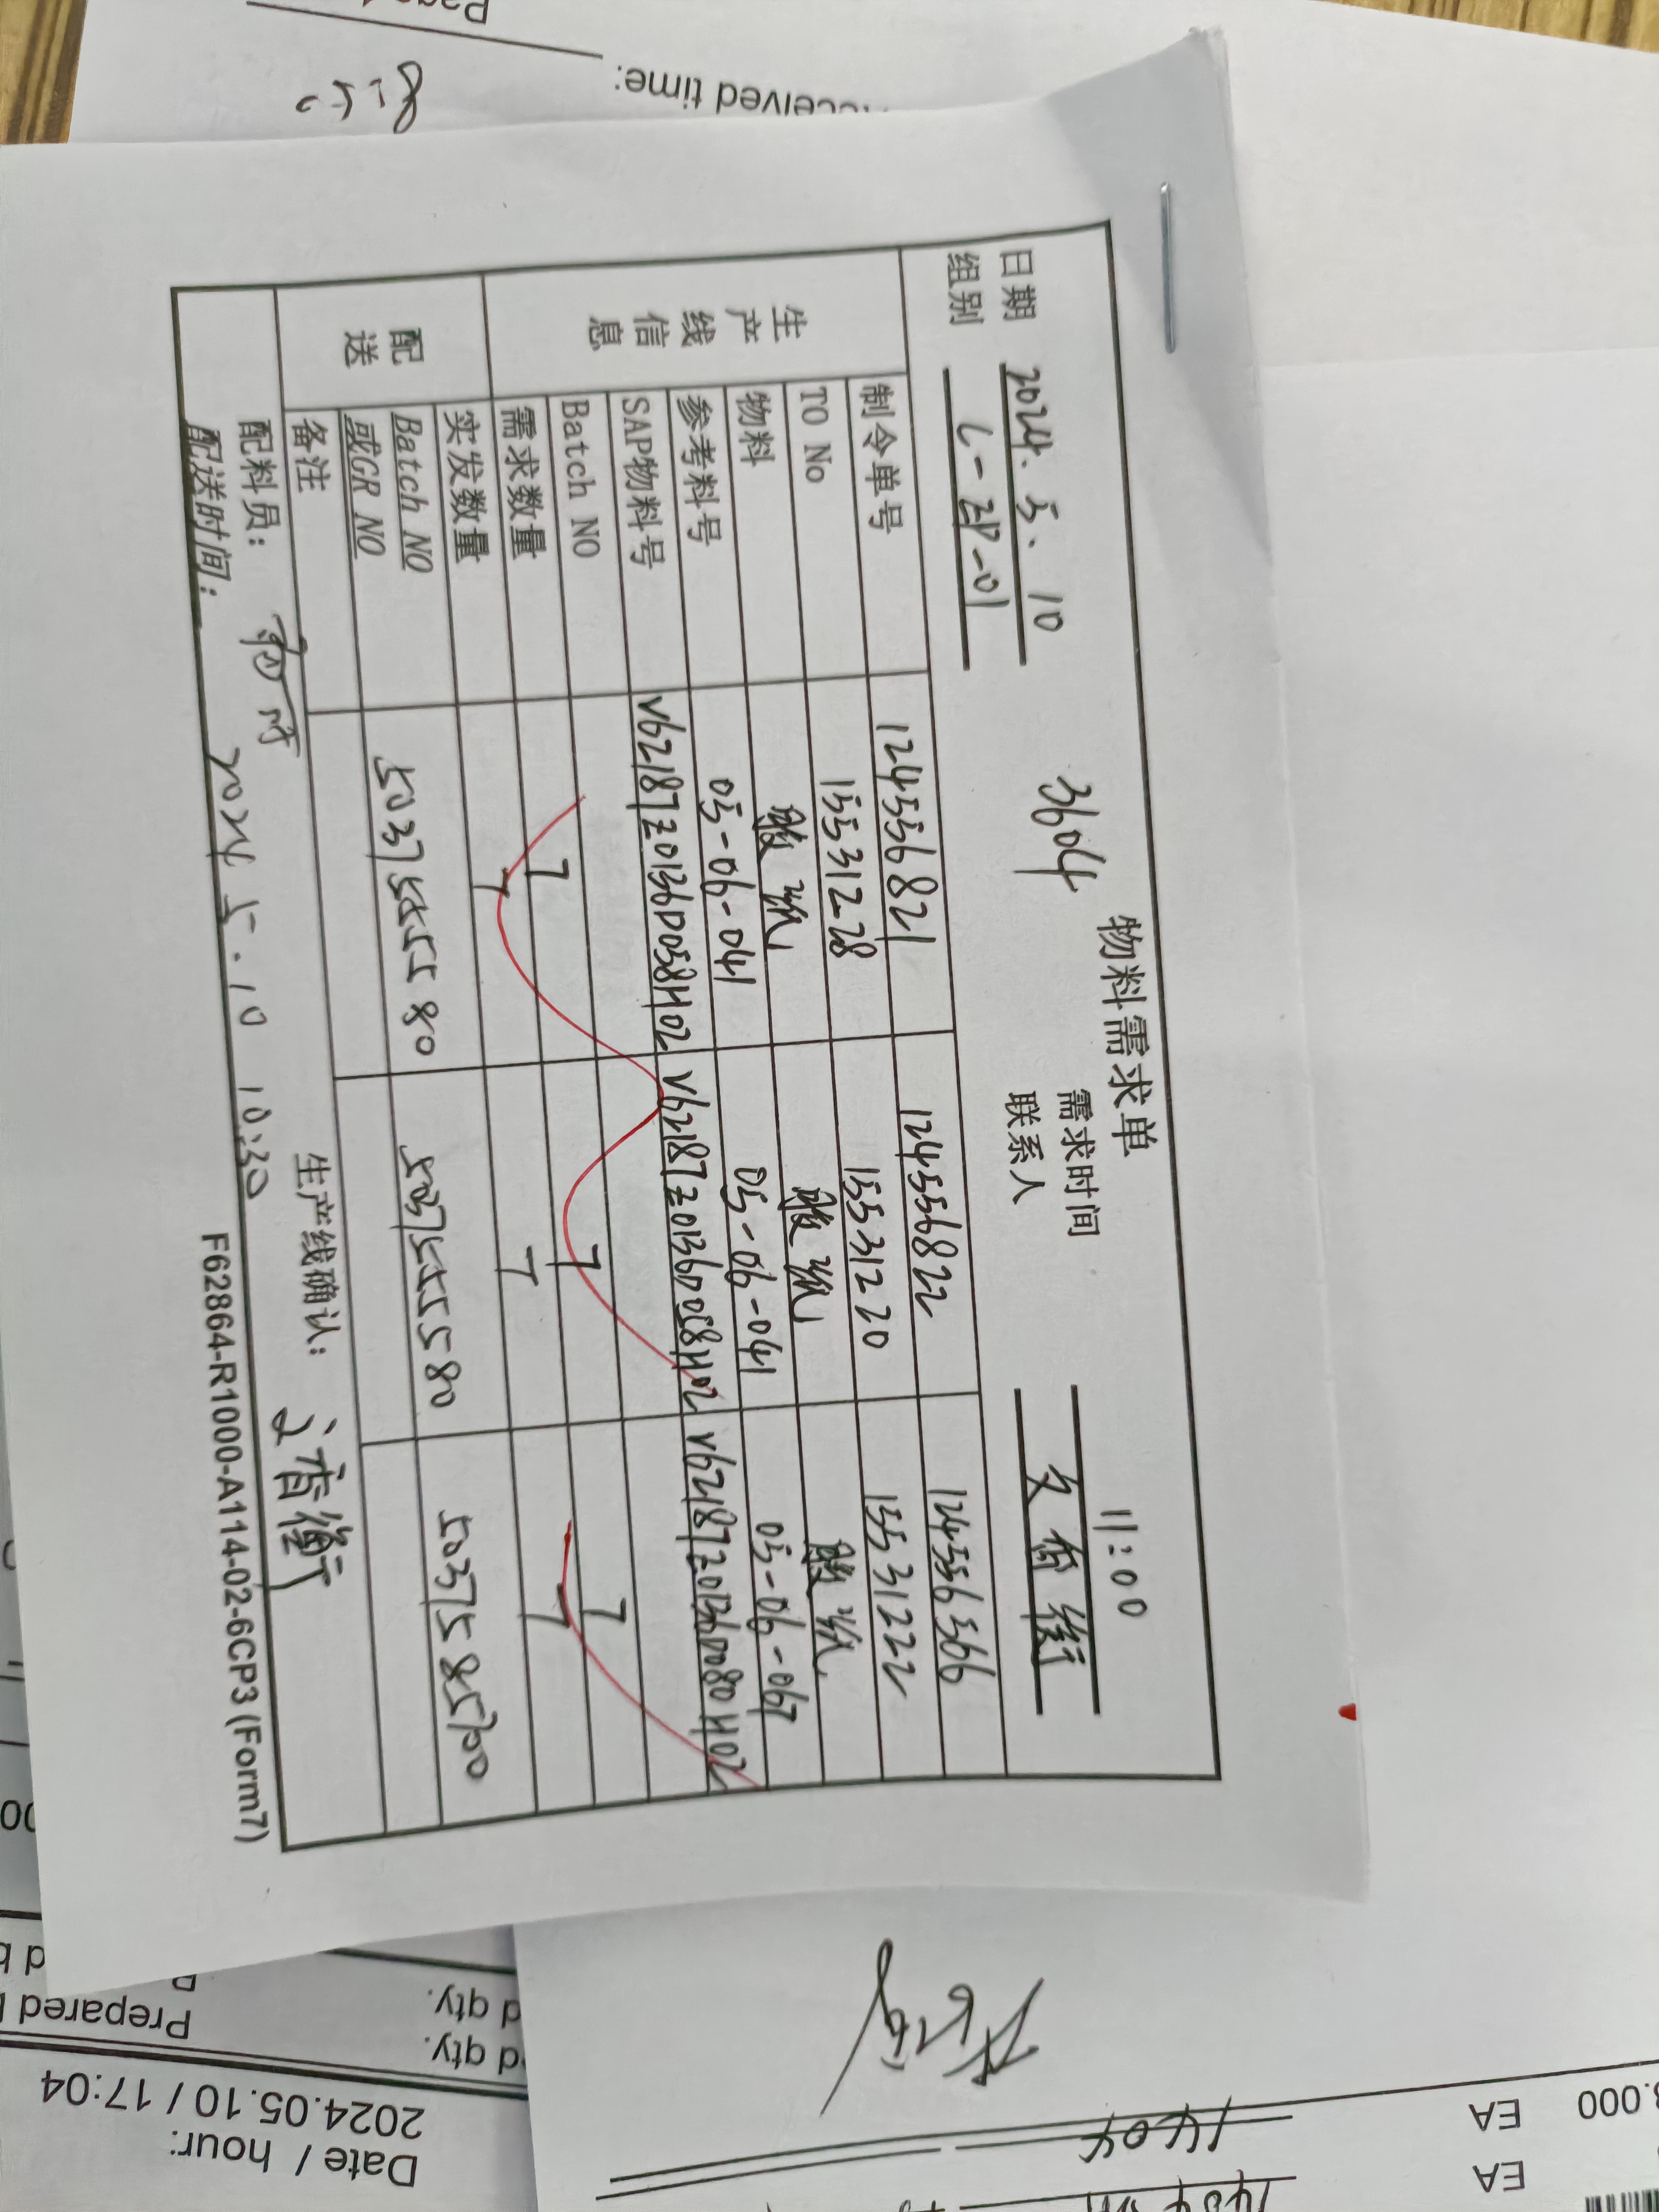 物料需求单
日期 2024.5.10 3604 需求时间 11:00
组别 L-21-01 联系人
生产线信息
制令单号 124556821 124556822 124556366
TO No 15531228 15531220 15531222
物料
参考料号 05-06-041 05-06-041 05-06-067
SAP物料号 V62187Z0136D058H02 V62187Z0136D058H02 V62187Z0136D080H02
Batch NO
需求数量 7 7 7
配送
实发数量 7 7 7
Batch NO 或GR NO 5037555580 5037555580 5037585700
备注
配料员: 生产线确认:
配送时间: 2024 5.10 10:30
F62864-R1000-A114-02-6CP3 (Form7)
Date / hour:
2024.05.10 / 17:04
Prepared
d qty.
d qty.
EA
EA
.000
1404